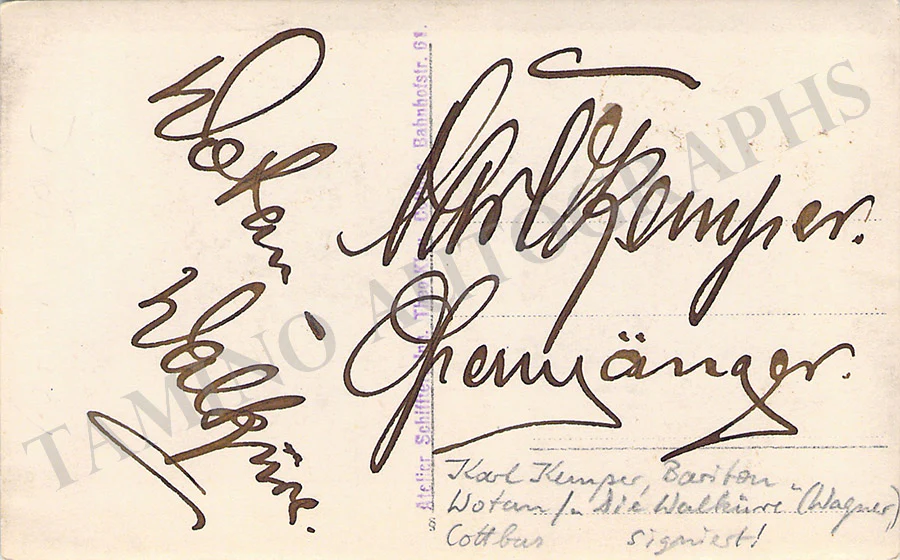 Wotan
Walküre.
Karl Kemper.
Opernsänger.
Atelier Bahnhofstr. 61.
Karl Kemper, Bariton
Wotan /„Die Walküre" (Wagner)
Cottbus signiert!
TAMINO AUTOGRAPHS